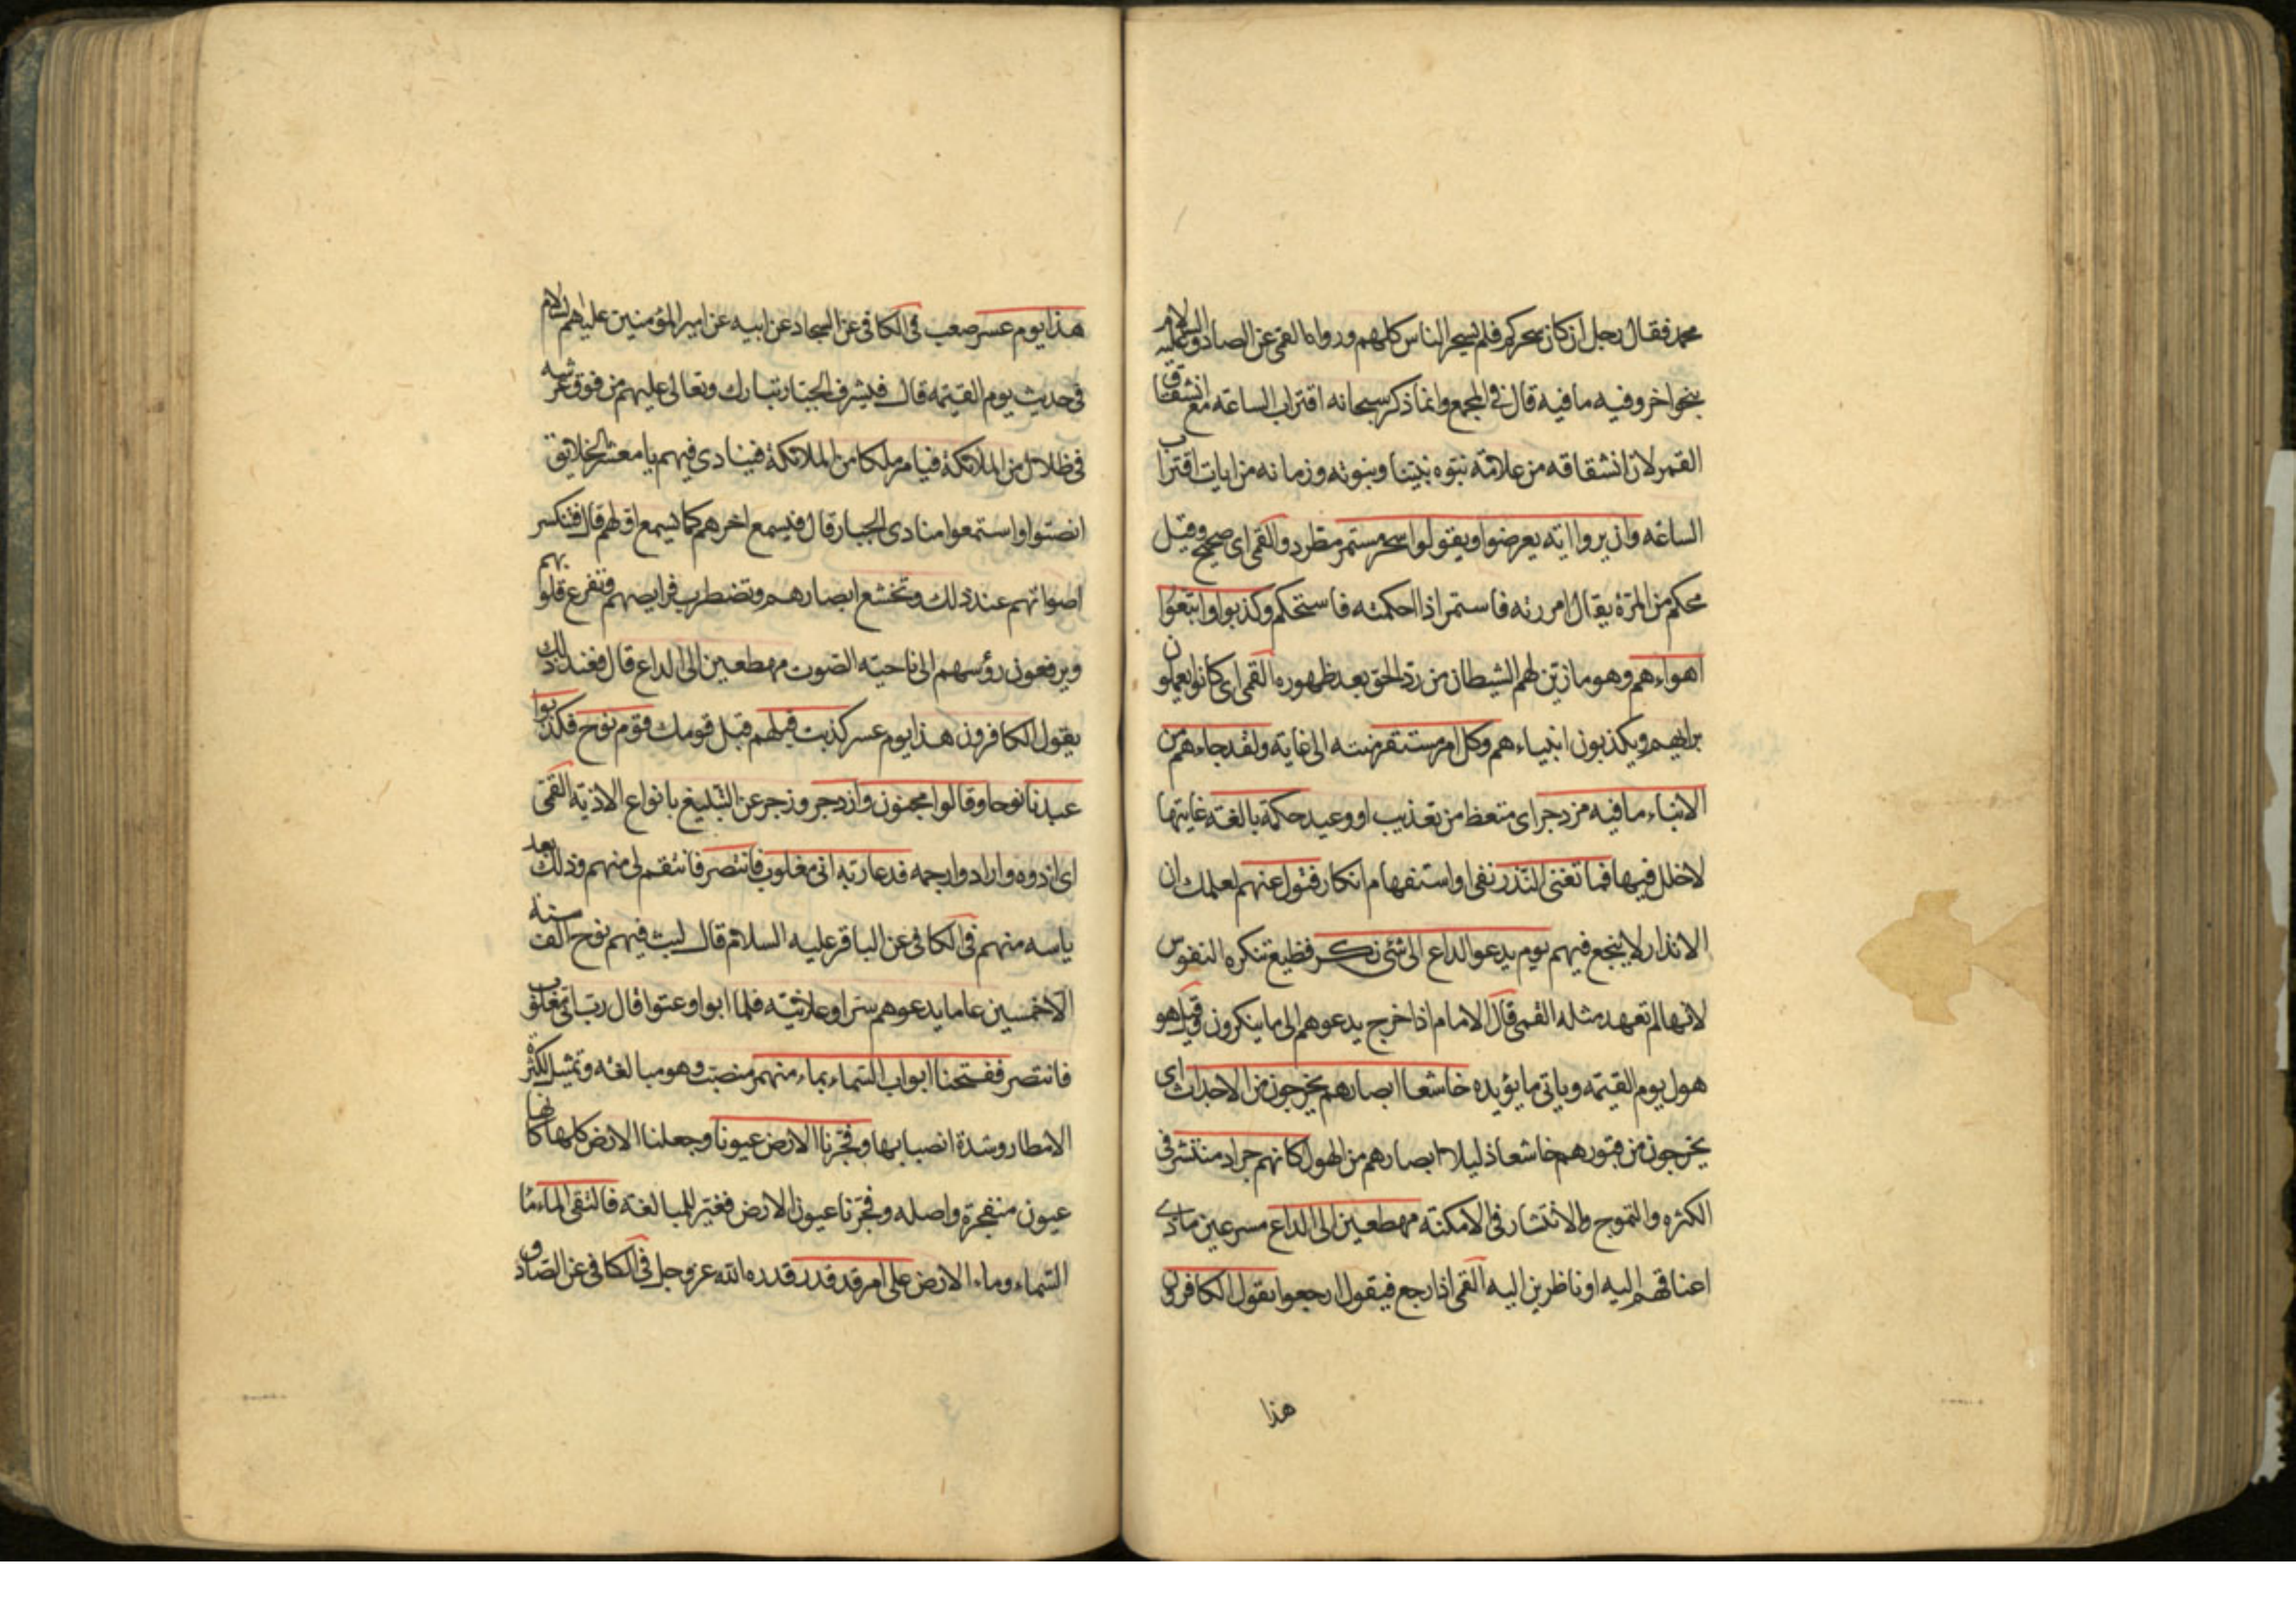 محمد فقال رجل ان كان سحركم فلم يسحر الناس كلهم ورواه القمى عن الصادق عليه السلام
بنحو اخر وفيه ما فيه قال فى المجمع وانما ذكر سبحانه اقتراب الساعة مع انشقاق
القمر لان انشقاقه من علامة نبوه نبينا ونبوته وزمانه من ايات اقتراب
الساعة وان يروا اية يعرضوا ويقولوا سحر مستمر مطرد والقمى اى صحيح وقيل
محكم من المرّة يقال امررته فاستمر اذا احكمته فاستحكم وكذبوا واتبعوا
اهواءهم وهو ما زين لهم الشيطان من رد الحق بعد ظهوره القمى اى كانوا يعملون
برايهم ويكذبون انبياءهم وكل امر مستقر منته الى غاية ولقد جاءهم من
الانباء ما فيه مزدجر اى متعظ من تعذيب او وعيد حكمة بالغة غايتها
لاخلل فيها فما تغنى النذر نفى او استفهام انكار فتول عنهم لعلمك ان
الانذار لا ينجع فيهم يوم يدعو الداع الى شئ نكر فظيع تنكره النفوس
لانها لم تعهد مثله القمى قال الامام اذا خرج يدعوهم الى ما ينكرون وقيل هو
هول يوم القيمة وياتى ما يؤيده خاشعا ابصارهم يخرجون من الاجداث اى
يخرجون من قبورهم خاشعا ذليلا ابصارهم من الهول كانهم جراد منتشر فى
الكثره والتموج والانتشار فى الامكنة مهطعين الى الداع مسرعين مادى
اعناقهم اليه او ناظرين اليه القمى اذا رجع فيقول ارجعوا يقول الكافرون
هذا
هذا يوم عسر صعب فى الكافى عن السجاد عن ابيه عن امير المؤمنين عليهم السلام
فى حديث يوم القيمة قال فيشرف الجبار تبارك وتعالى عليهم من فوق عرشه
فى ظلال من الملائكة فيامر ملكا من الملائكة فينادى فيهم يا معشر الخلايق
انصتوا واستمعوا منادى الجبار قال فيسمع اخرهم كما يسمع اولهم قال فتنكسر
اصواتهم عند ذلك وتخشع ابصارهم وتضطرب فرايصهم وتفزع قلوبهم
ويرفعون رؤسهم الى ناحية الصوت مهطعين الى الداع قال فعند ذلك
يقول الكافرون هذا يوم عسر كذبت قبلهم قبل قومك قوم نوح فكذبوا
عبدنا نوحا وقالوا مجنون وازدجر وزجر عن التبليغ بانواع الاذية القمى
اى اذوه وارادوا رجمه فدعا ربه انى مغلوب فانتصر فانتقم لى منهم وذلك بعد
ياسه منهم فى الكافى عن الباقر عليه السلام قال لبث فيهم نوح الف سنة
الا خمسين عاما يدعوهم سرا وعلانية فلما ابوا وعتوا قال رب انى مغلوب
فانتصر ففتحنا ابواب السماء بماء منهمر منصب وهو مبالغة وتمثيل لكثرة
الامطار وشدة انصبابها وفجرنا الارض عيونا وجعلنا الارض كلها كانها
عيون منفجرة واصله وفجرنا عيون الارض فغير للمبالغة فالتقى الماء ماء
السماء وماء الارض على امر قد قدر قدره الله عز وجل فى الكافى عن الصادق